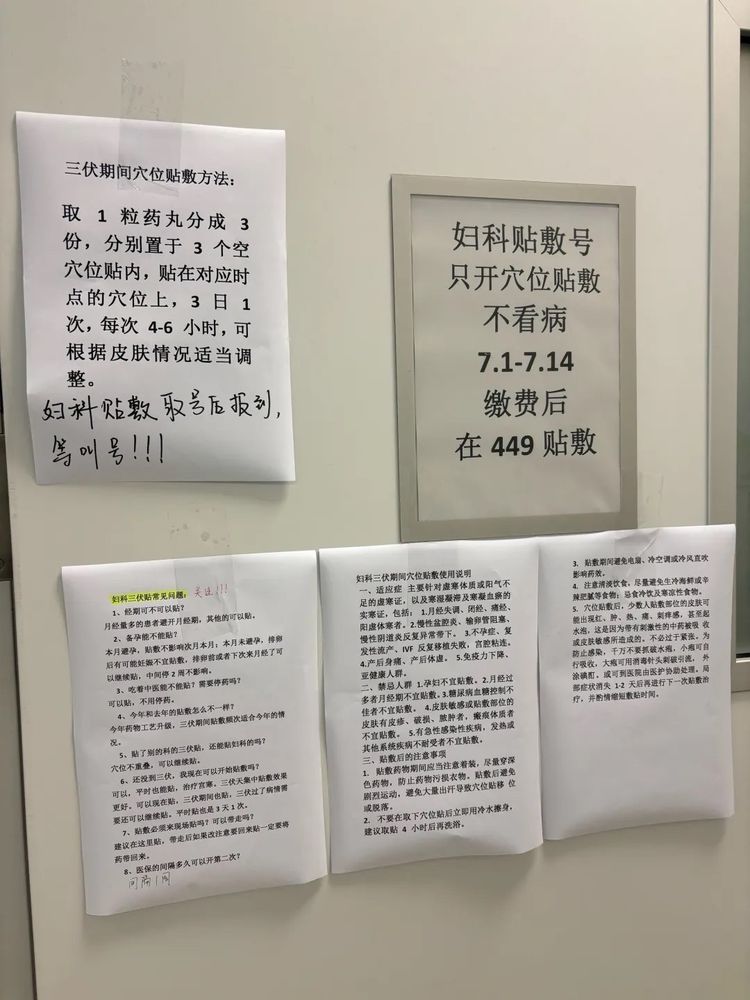 三伏期间穴位贴敷方法：
取 1 粒药丸分成 3
份，分别置于 3 个空
穴位贴内，贴在对应时
点的穴位上，3 日 1
次，每次 4-6 小时，可
根据皮肤情况适当调
整。
妇科贴敷取号后报到，
等叫号!!!
妇科贴敷号
只开穴位贴敷
不看病
7.1-7.14
缴费后
在 449 贴敷
妇科三伏贴常见问题： 关注!!!
1、经期可不可以贴？
月经量多的患者避开月经期，其他的可以贴。
2、备孕能不能贴？
本月避孕，贴敷不影响次月本月；本月未避孕，排卵
后有可能妊娠不宜贴敷，排卵前或者下次来月经了可
以继续贴，中间停 2 周不影响。
3、吃着中医能不能贴？需要停药吗？
可以贴，不用停药。
4、今年和去年的贴敷怎么不一样？
今年药物工艺升级，三伏期间贴敷频次适合今年的情
况。
5、贴了别的科的三伏贴，还能贴妇科的吗？
穴位不重叠，可以继续贴。
6、还没到三伏，我现在可以开始贴敷吗？
可以，平时也能贴，治疗宫寒。三伏天集中贴敷效果
更好。可以现在贴，三伏期间也贴，三伏过了病情需
要还可以继续贴。平时贴也是 3 天 1 次。
7、贴敷必须来现场贴吗？可以带走吗？
建议在这里贴，带走后如果改注意要回来贴一定要将
药带回来。
8、医保的间隔多久可以开第二次？
间隔1周
妇科三伏期间穴位贴敷使用说明
一、适应症 主要针对虚寒体质或阳气不
足的虚寒证，以及寒湿凝滞及寒凝血瘀的
实寒证，包括：1.月经失调、闭经、痛经、
阳虚体寒者。2.慢性盆腔炎、输卵管阻塞、
慢性阴道炎反复异常带下。3.不孕症、复
发性流产、IVF 反复移植失败，宫腔粘连。
4.产后身痛、产后体虚。 5.免疫力下降、
亚健康人群。
二、禁忌人群 1.孕妇不宜贴敷。2.月经过
多者月经期不宜贴敷。3.糖尿病血糖控制不
佳者不宜贴敷。 4.皮肤敏感或贴敷部位的
皮肤有皮疹、破损、脓肿者，瘢痕体质者
不宜贴敷。 5.有急性感染性疾病，发热或
其他系统疾病不耐受者不宜贴敷。
三、贴敷后的注意事项
1. 贴敷药物期间应当注意着装，尽量穿深
色药物，防止药物污损衣物。贴敷后避免
剧烈运动，避免大量出汗导致穴位贴移 位
或脱落。
2. 不要在取下穴位贴后立即用冷水擦身，
建议取贴 4 小时后再洗浴。
3. 贴敷期间避免电扇、冷空调或冷风直吹
影响药效。
4. 注意清淡饮食，尽量避免生冷海鲜或辛
辣肥腻等食物；忌食冷饮及寒凉性食物。
5. 穴位贴敷后，少数人贴敷部位的皮肤可
能出现红、肿、热、痛、刺痒感，甚至起
水疱，这是因为带有刺激性的中药被吸 收
或皮肤敏感所造成的。不必过于紧张，为
防止感染，千万不要抠破水疱，小疱可自
行吸收，大疱可用消毒针头刺破引流， 外
涂碘酊。或可到医院由医护协助处理。局
部症状消失 1-2 天后再进行下一次贴敷治
疗，并酌情缩短敷贴时间。